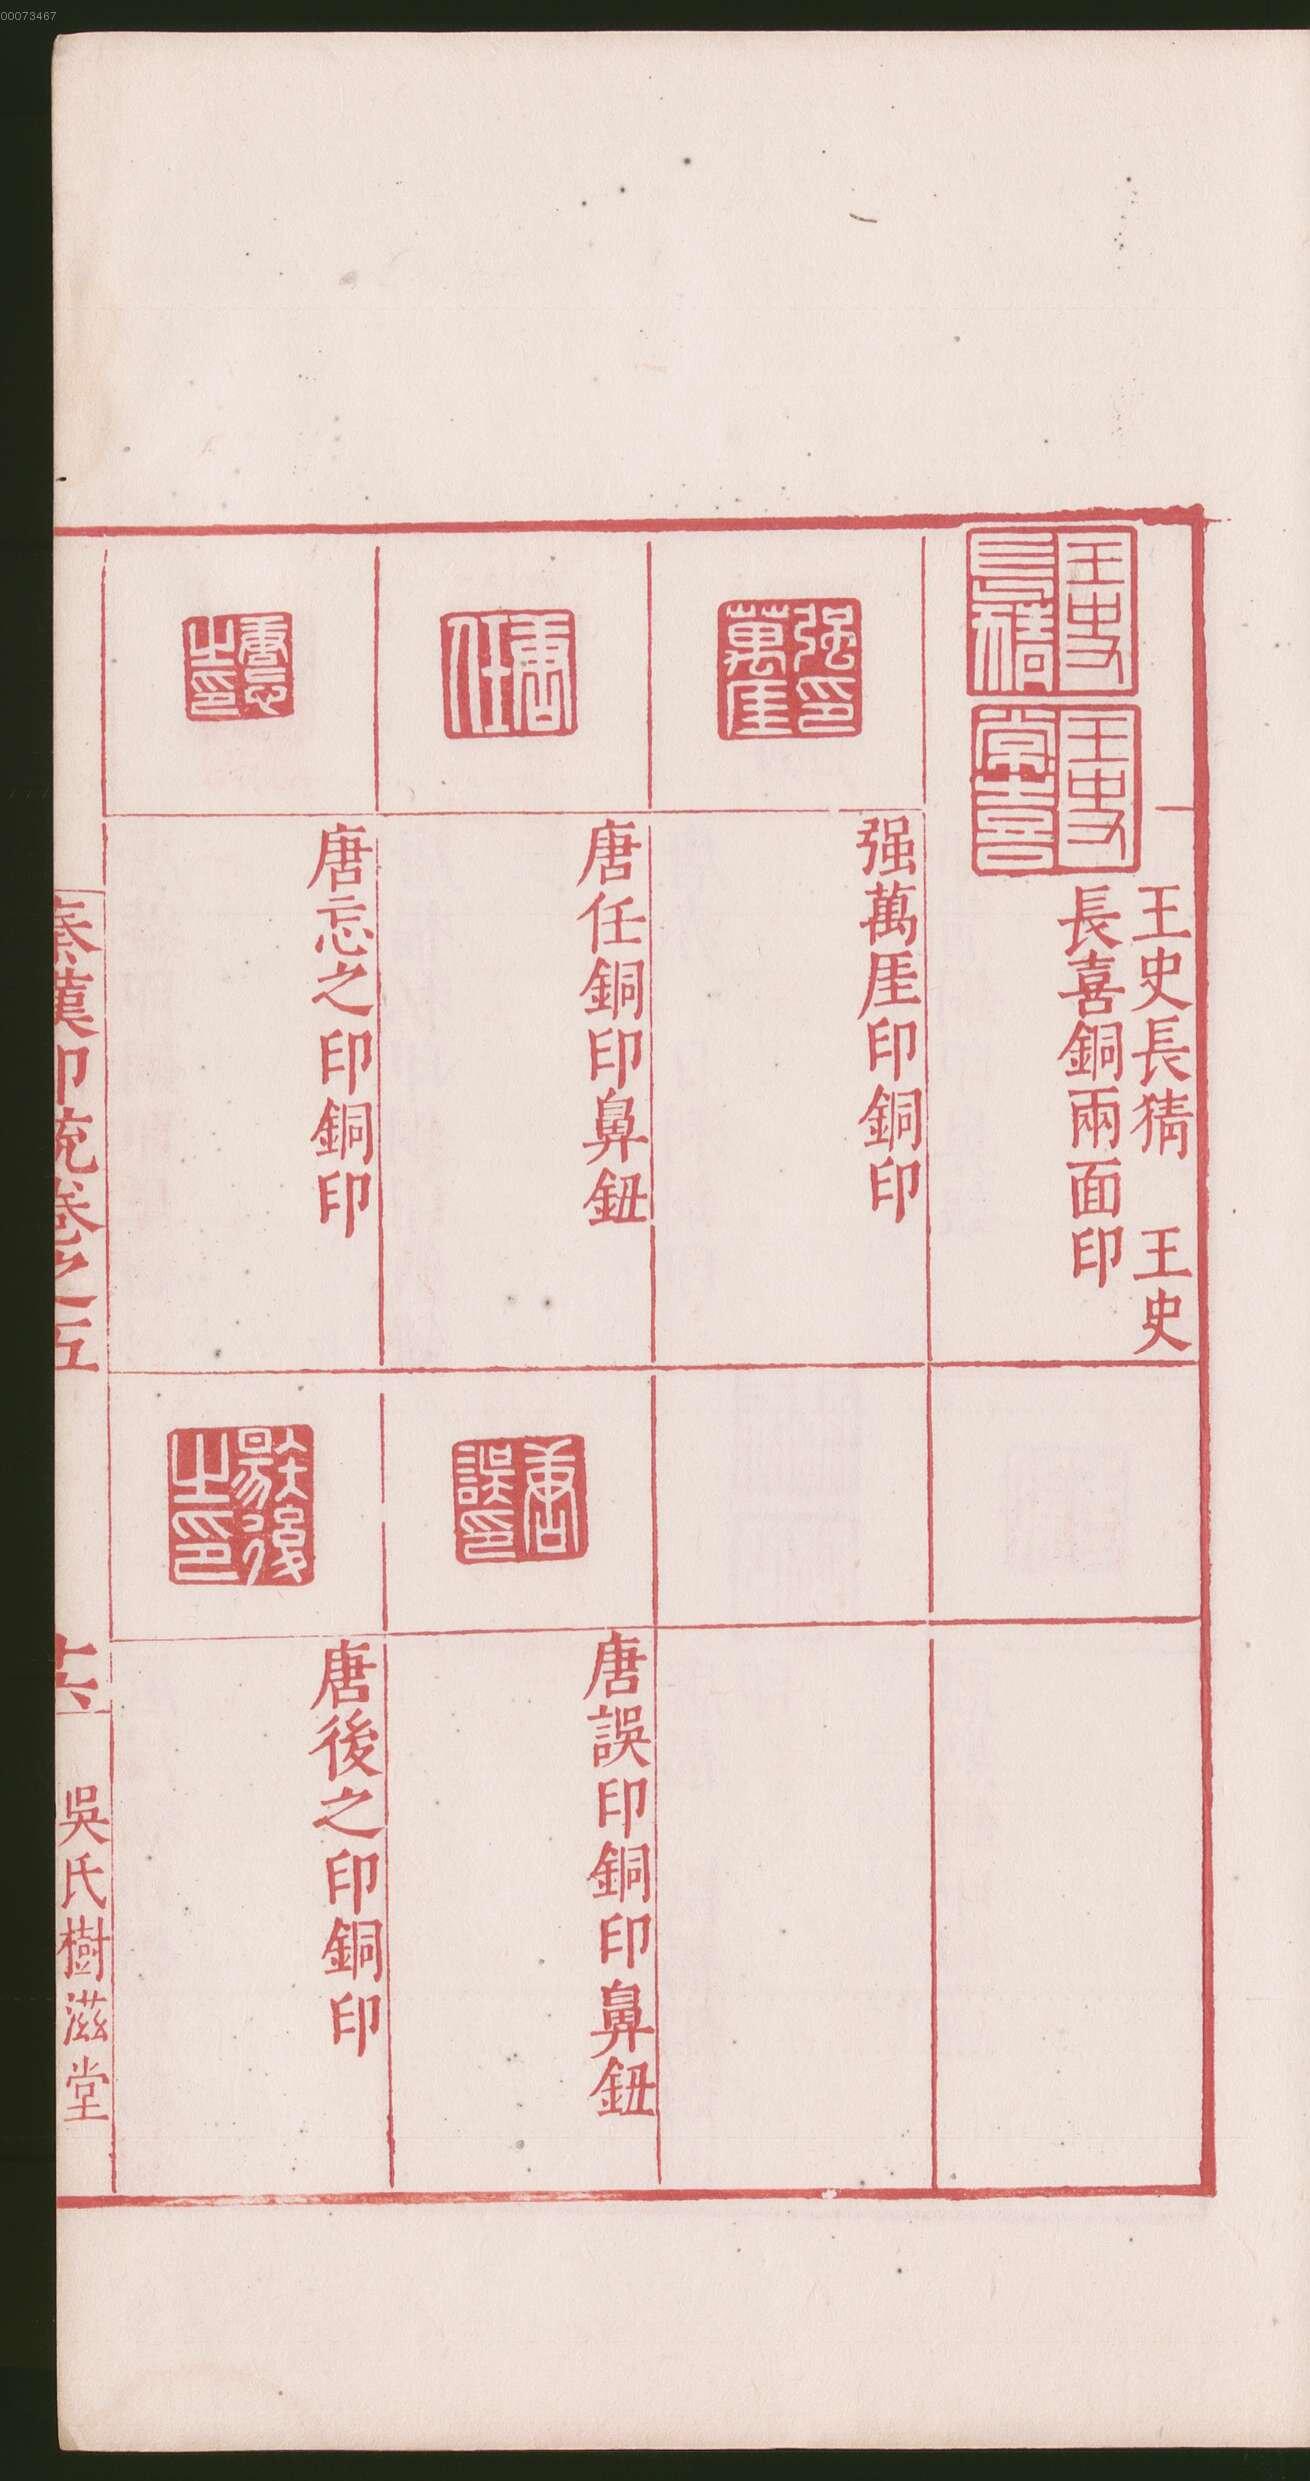 00073467
王史長猜 王史
長喜銅兩面印
强萬厓印銅印
唐任銅印鼻鈕
唐忘之印銅印
唐誤印銅印鼻鈕
唐後之印銅印
秦漢印統卷之五
十六
吳氏樹滋堂